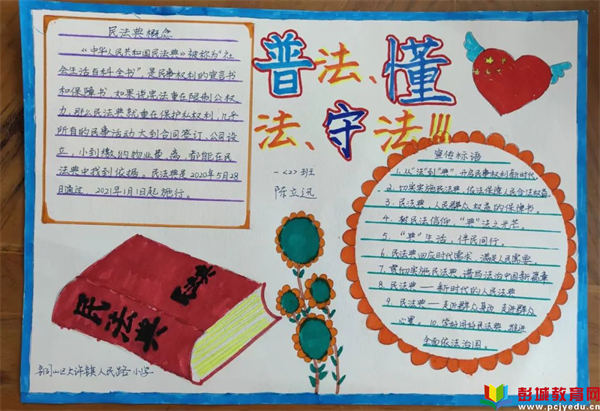 民法典概念
《中华人民共和国民法典》被称为“社
会生活百科全书”是民事权利的宣言书
和保障书 如果说宪法重在限制公权
力,那么民法典就重在保护私权利,几乎
所有的民事活动大到合同签订、公司设
立,小到缴纳物业费、离 都能在民
法典中找到依据。民法典是2020年5月28
日通过 2021年1月1日起施行。
普法、懂
法、守法!!!
一<2>班
陈立远
宣传标语
1.从“法”到“典”,开启民事权利新时代。
2.切实实施民法典,依法保障人民合法权益。
3.民法典,人民群众权益的保障书。
4.树民法信仰,“典”法之光芒。
5.“典”生活,伴民同行。
6.民法典回应时代需求,满足人民需要。
7.贯彻实施民法典,谱写法治中国新篇章
8.民法典——新时代的人民法典
9.民法典——走进群众身边 走进群众
心里。10.学好用好民法典 推进
全面依法治国。
民法典
民法典
铜山区大许镇人民路小学
彭城教育网
www.pcjyedu.cn